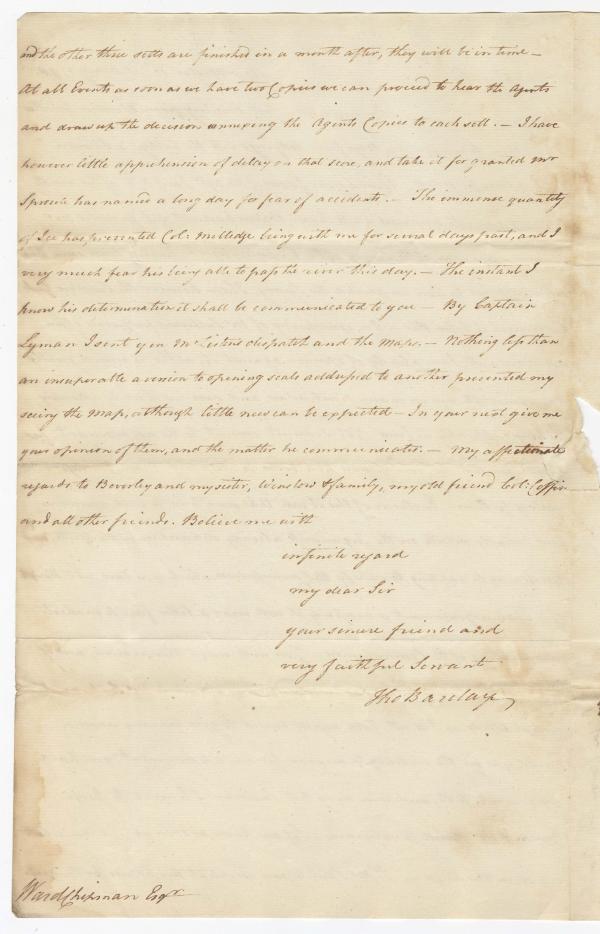 and the other three setts are finished in a month after, they will be in time —
At all Events as soon as we have two Copies we can proceed to hear the Agents
and draw up the decision annexing the Agents Copies to each sett. — I have
however little apprehension of delay on that score, and take it for granted Mr
Sproule has named a long day for fear of accidents. — The immense quantity
of Ice has prevented Col: Milledge being with me for several days past, and I
very much fear his being able to pass the river this day. — The instant I
know his determination it shall be communicated to you — By Captain
Lyman I sent you Mr Listons dispatch and the Maps. — Nothing less than
an insuperable aversion to opening seals addressed to another prevented my
seeing the Map, although little new can be expected — In your next give me
your opinion of them, and the matter he communicates. — My affectionate
regards to Beverley and my sister, Winslow & family, my old friend Col: Coffin
and all other friends. Believe me with
infinite regard
my dear Sir
your sincere friend and
very faithful Servant
Tho Barclay
Ward Chipman Esqr